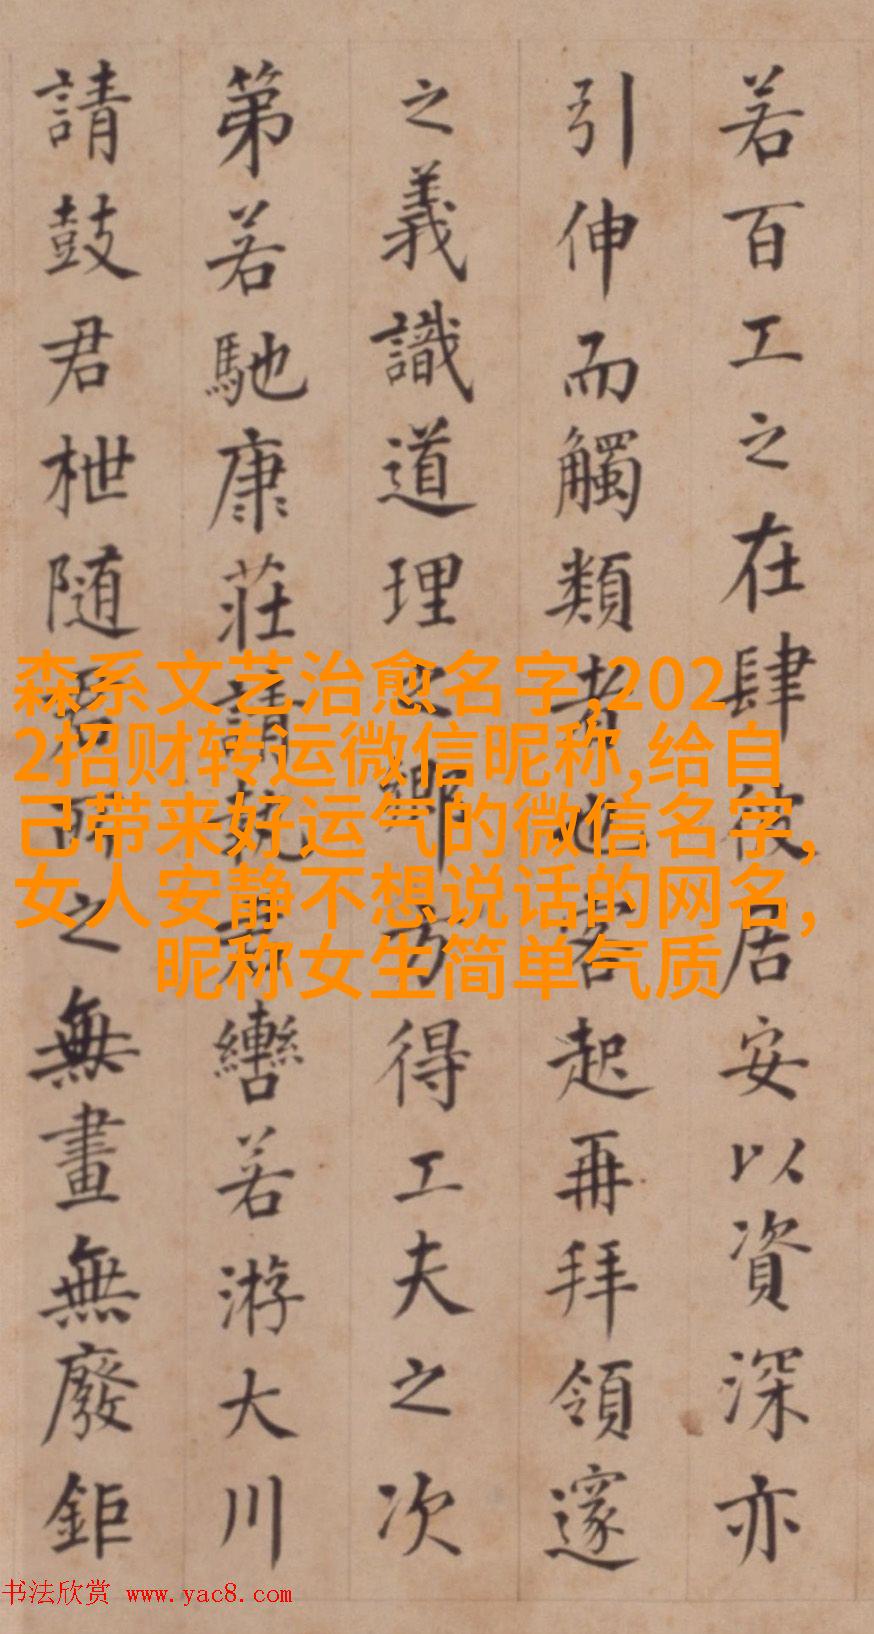 若百工之在肆彼居安以資深亦
引伸而觸類者也客起再拜領邃
之義識道理之鄉方得工夫之次
第若馳康莊請執君轡若游大川
請鼓君枻随君所之無畫無廢鉅
森系文艺治愈名字,202
2招财转运微信昵称,给自
己带来好运气的微信名字,
女人安静不想说话的网名,
昵称女生简单气质
书法欣赏 www.yac8.com